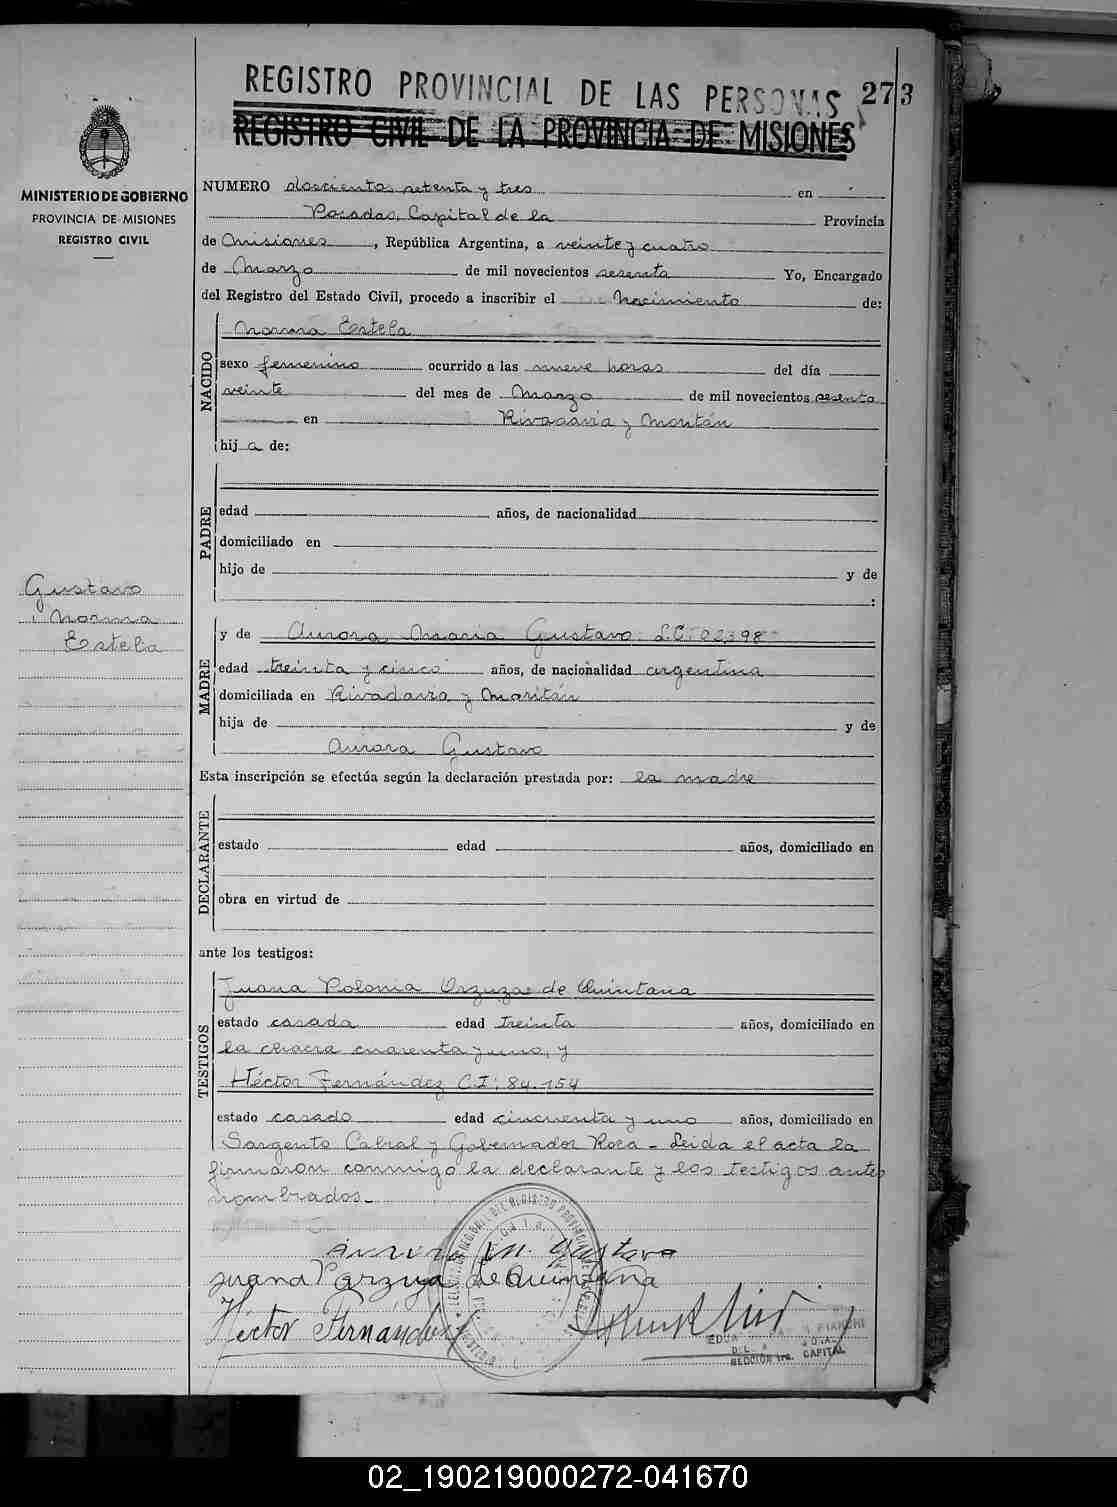 REGISTRO PROVINCIAL DE LAS PERSONAS 273
REGISTRO CIVIL DE LA PROVINCIA DE MISIONES
MINISTERIO DE GOBIERNO
PROVINCIA DE MISIONES
REGISTRO CIVIL
NUMERO doscientos setenta y tres en
Posadas, Capital de la Provincia
de Misiones, República Argentina, a veinte y cuatro
de Marzo de mil novecientos sesenta Yo, Encargado
del Registro del Estado Civil, procedo a inscribir el Nacimiento de:
NACIDO
Norma Estela
sexo femenino ocurrido a las nueve horas del día
veinte del mes de Marzo de mil novecientos sesenta
en Rivadavia y Moritán
hija de:
PADRE
edad años, de nacionalidad
domiciliado en
hijo de y de
:
Gustavo
Norma
Estela
MADRE
y de Aurora Maria Gustavo L.C:
edad treinta y cinco años, de nacionalidad argentina
domiciliada en Rivadavia y Moritán
hija de y de
Aurora Gustavo
Esta inscripción se efectúa según la declaración prestada por: la madre
DECLARANTE
estado edad años, domiciliado en
obra en virtud de
ante los testigos:
TESTIGOS
Juana Polonia Orzuza de Quintana
estado casada edad treinta años, domiciliado en
la chacra cuarenta y uno, y
Héctor Fernández C.I: 84.154
estado casado edad cincuenta y uno años, domiciliado en
Sargento Cabral y Gobernador Roca - Leida el acta la
firmaron conmigo la declarante y los testigos antes
nombrados.-
Aurora M. Gustavo
Juana P orzuza de Quintana
Héctor Fernández
SECCIÓN 1ra. CAPITAL
02_190219000272-041670